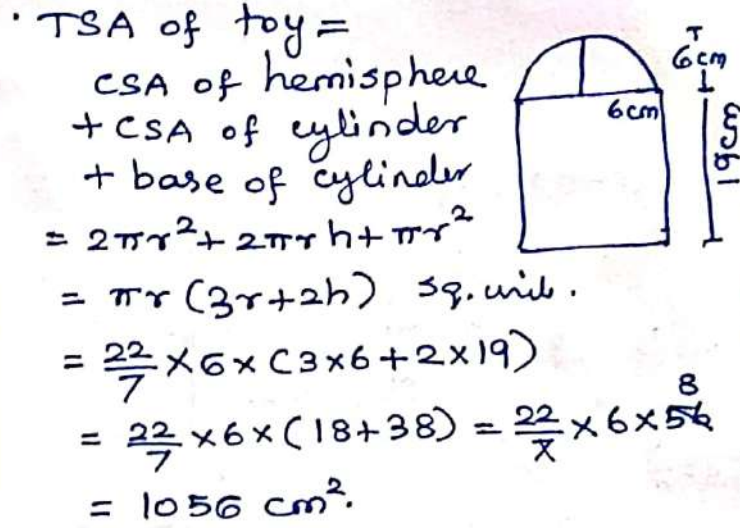 · TSA of toy =
CSA of hemisphere
+ CSA of cylinder
+ base of cylinder
= 2πr² + 2πrh + πr²
= πr (3r+2h) sq. unit.
= 22/7 × 6 × (3×6+2×19)
= 22/7 × 6 × (18+38) = 22/7 × 6 × 56 8
= 1056 cm².
6cm
6cm
19cm